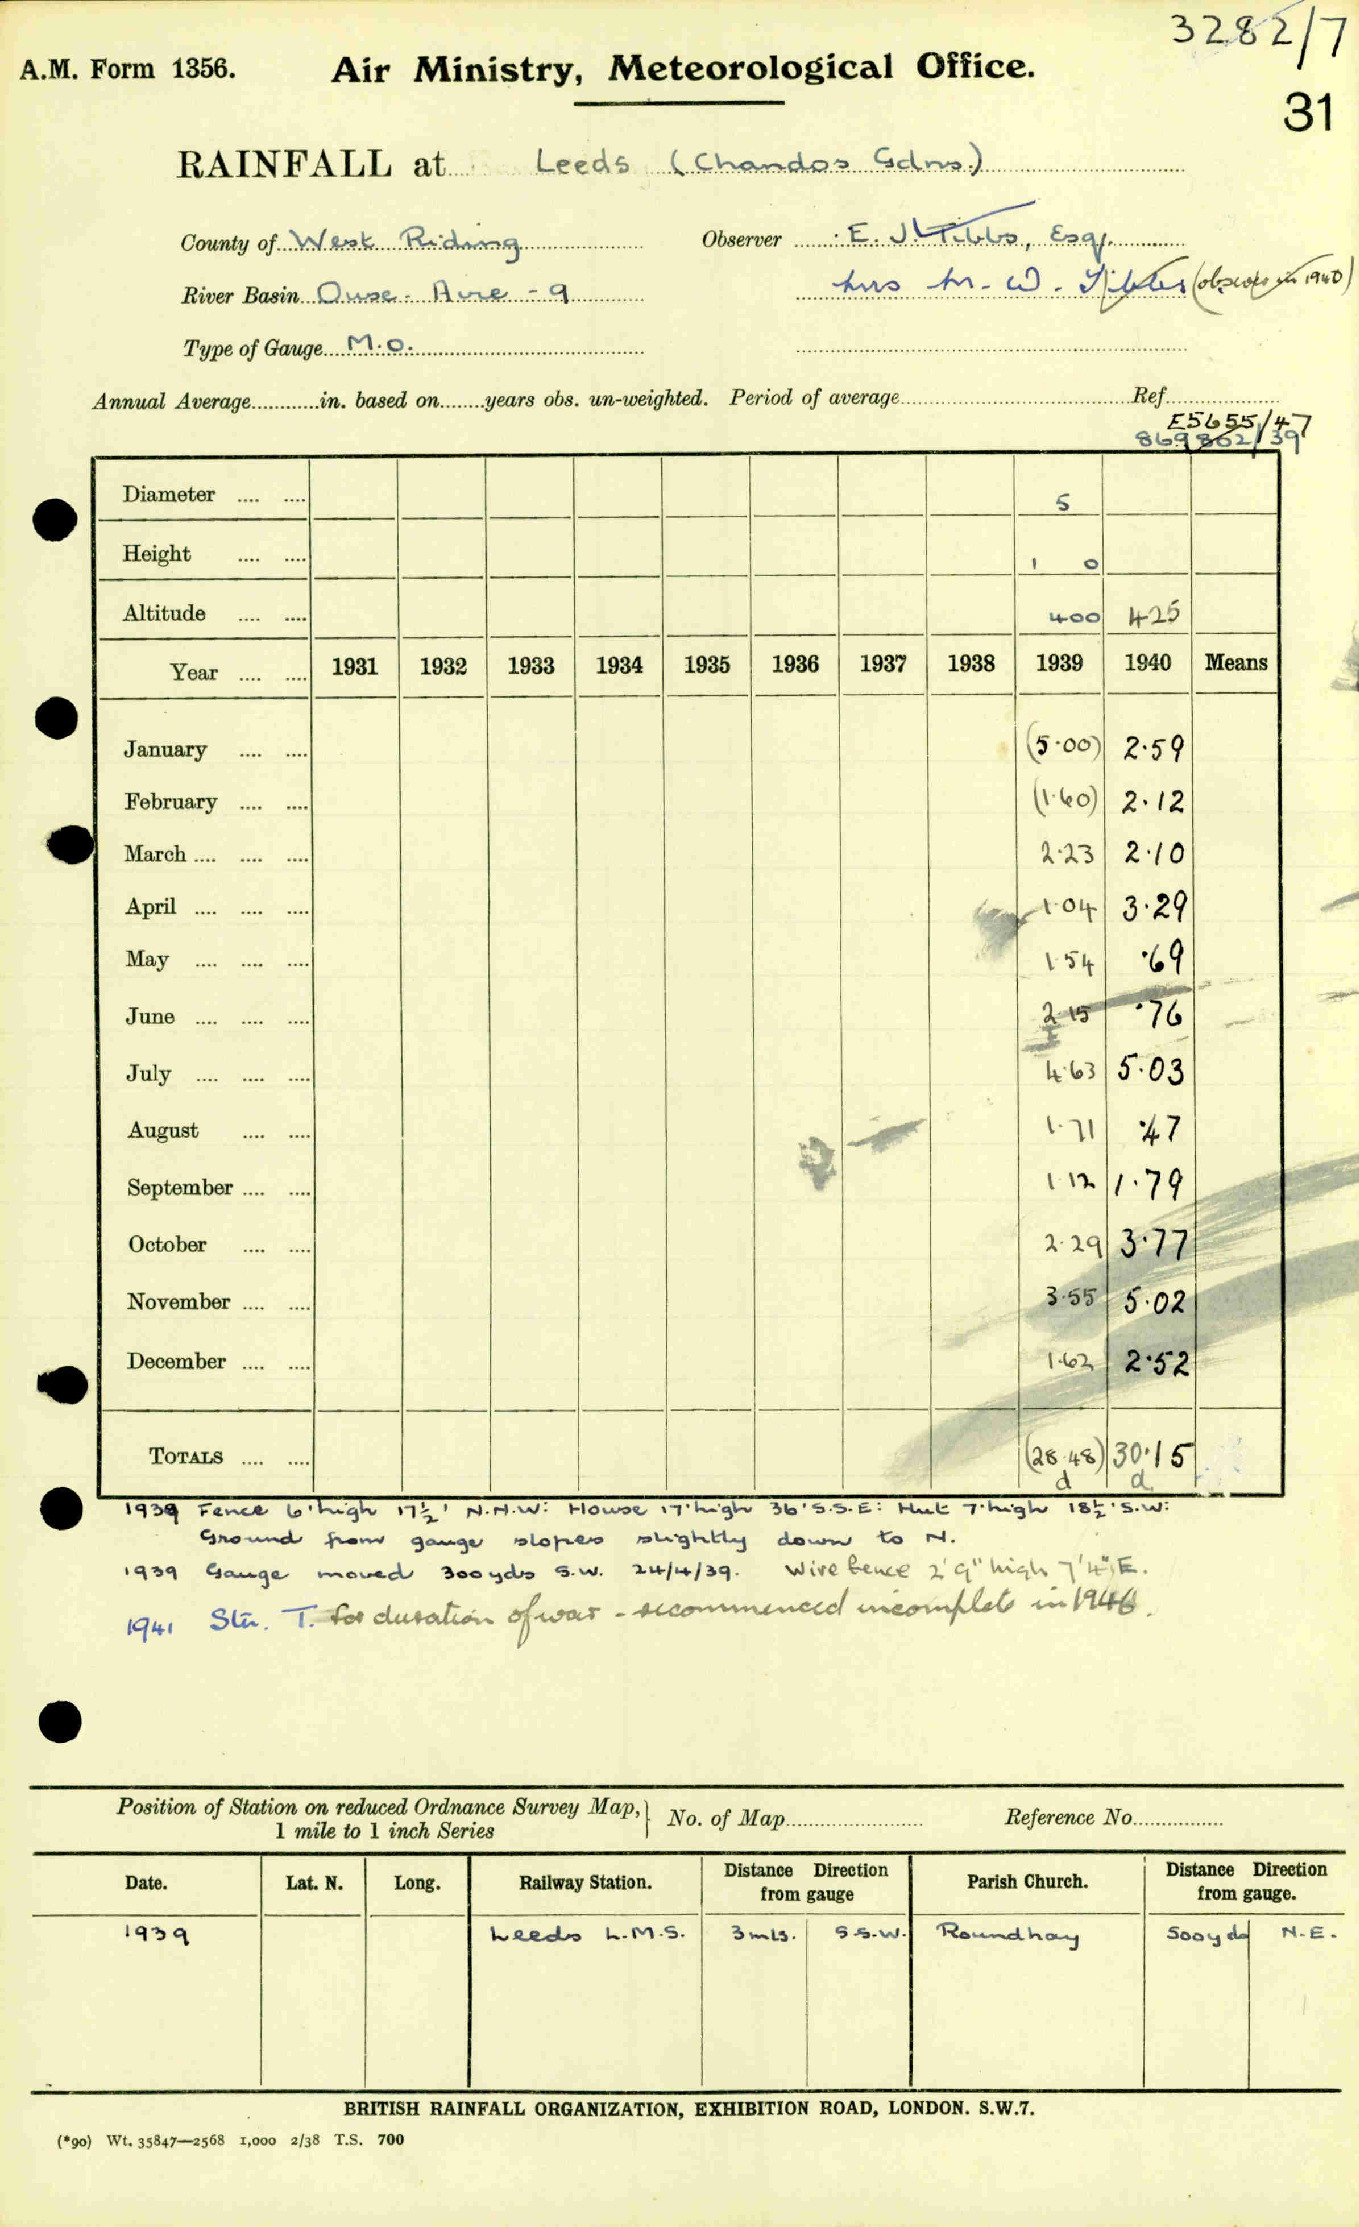 3282/7
A.M. Form 1356. Air Ministry, Meteorological Office.
31
RAINFALL at Leeds (Chandos Gdns.)
County of West Riding Observer E. J. Tibbs, Esq.
River Basin Ouse - Aire - 9 Mrs M. W. Tibbs (observer in 1940)
Type of Gauge M.O.
Annual Average............in. based on........years obs. un-weighted. Period of average........ Ref........
E5655/47
869802/39
Diameter .... .... 5
Height .... .... 1 0
Altitude .... .... 400 425
Year .... .... 1931 1932 1933 1934 1935 1936 1937 1938 1939 1940 Means
January .... .... (5·00) 2·59
February .... .... (1·60) 2·12
March .... .... .... 2·23 2·10
April .... .... .... 1·04 3·29
May .... .... .... 1·54 ·69
June .... .... .... 2·15 ·76
July .... .... .... 4·63 5·03
August .... .... 1·71 ·47
September .... .... 1·12 1·79
October .... .... 2·29 3·77
November .... .... 3·55 5·02
December .... .... 1·62 2·52
TOTALS .... .... (28·48) 30·15
d d
1939 Fence 6' high 17½' N.N.W: House 17' high 36' S.S.E: Hut 7' high 18½' S.W:
Ground from gauge slopes slightly down to N.
1939 Gauge moved 300yds S.W. 24/4/39. Wire fence 2'9" high 7'4" E.
1941 Stn. T. for duration of war - recommenced incomplete in 1946.
Position of Station on reduced Ordnance Survey Map, 1 mile to 1 inch Series } No. of Map........ Reference No........
Date. Lat. N. Long. Railway Station. Distance Direction from gauge Parish Church. Distance Direction from gauge.
1939 Leeds L.M.S. 3 mls. S.S.W. Roundhay 500yds N.E.
BRITISH RAINFALL ORGANIZATION, EXHIBITION ROAD, LONDON. S.W.7.
(*90) Wt. 35847—2568 1,000 2/38 T.S. 700